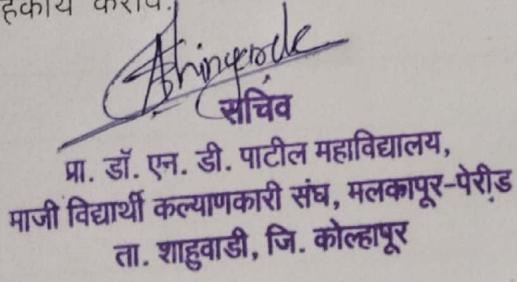 हकार्य करावे.
सचिव
प्रा. डॉ. एन. डी. पाटील महाविद्यालय,
माजी विद्यार्थी कल्याणकारी संघ, मलकापूर-पेरीड
ता. शाहुवाडी, जि. कोल्हापूर